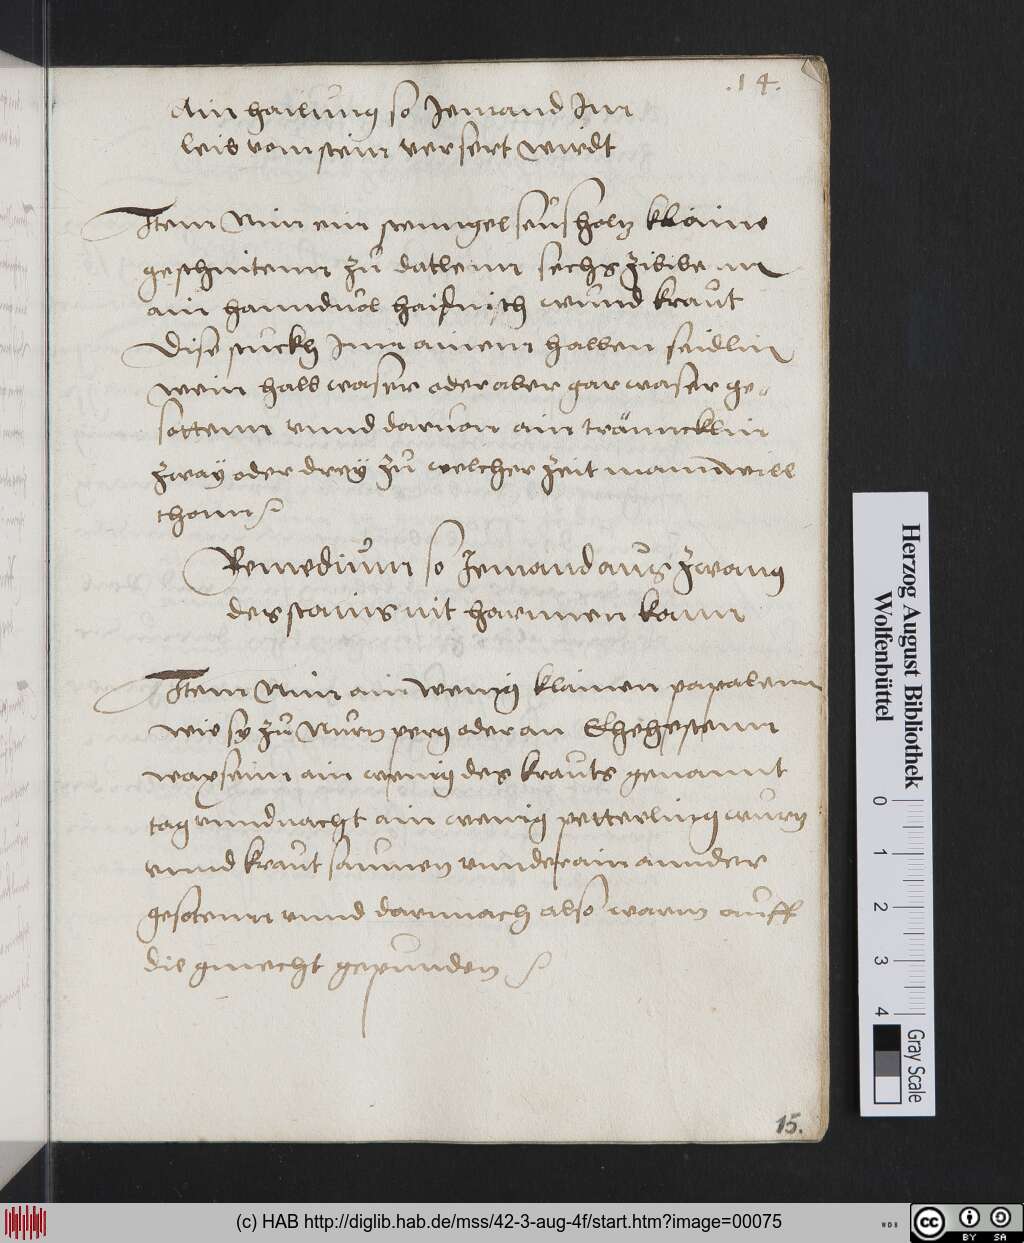 .14.
Ain hailung so Jemand Im
leib vom stein versert wirdt
Item Nim ein stenngel seusholtz klaine
geschnitenn zu datlenn sechs zibibe nn
ain hanndvol haidnisch wund kraut
Dise stuckh Inn ainem halben seidlin
wein halb waser oder aber gar waser ge¬
sottenn vnnd darvon ain träncklin
zway oder drey zu welcher zeit mann will
thonn
Remedium so Jemand aus zwang
des stains nit harmen kann
Item Nim ain wenig klainen papalenn
wie sy zu Nurn perg oder an
waxsenn ain wenig des krauts genannt
tag vnnd nacht ain wenig petterling wurtz
vnnd kraut samen vnnder ain annder
gesotenn vnnd darnnach also warm auff
die gmecht gepunden
15.
Herzog August Bibliothek
Wolfenbüttel
0 1 2 3 4
Gray Scale
(c) HAB http://diglib.hab.de/mss/42-3-aug-4f/start.htm?image=00075
WDB
cc BY SA